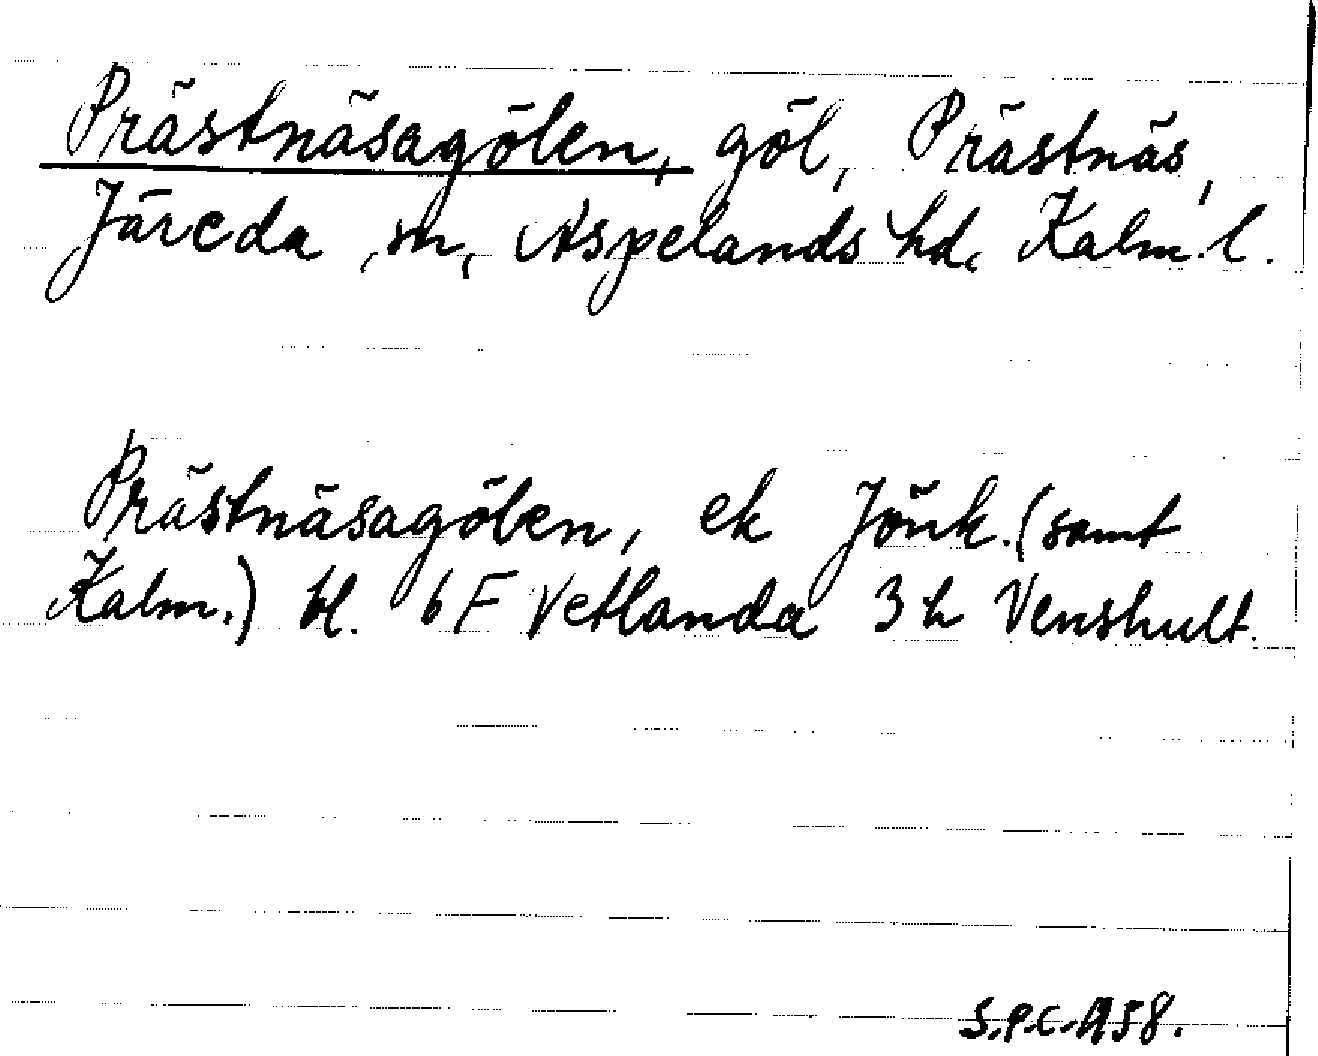 Prästnäsagölen, göl, Prästnäs,
Järeda sn, Aspelands hd, Kalm. l.
Prästnäsagölen, ek Jönk. (samt
Kalm.) bl. 6 F Vetlanda 3 h Venshult.
S.P.C. 1958.